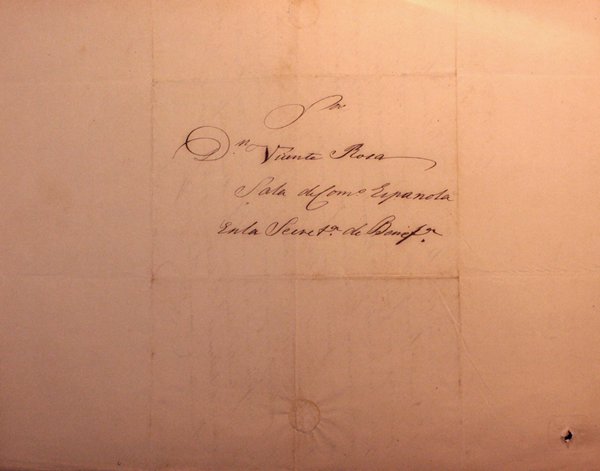 Sor
Dn. Vicente Rosa
Sala de Come Española
En la Secreta. de Benefa.